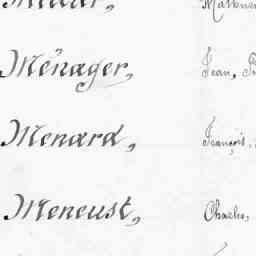 Ménager, Jean,
Menard, François,
Meneust, Charles,